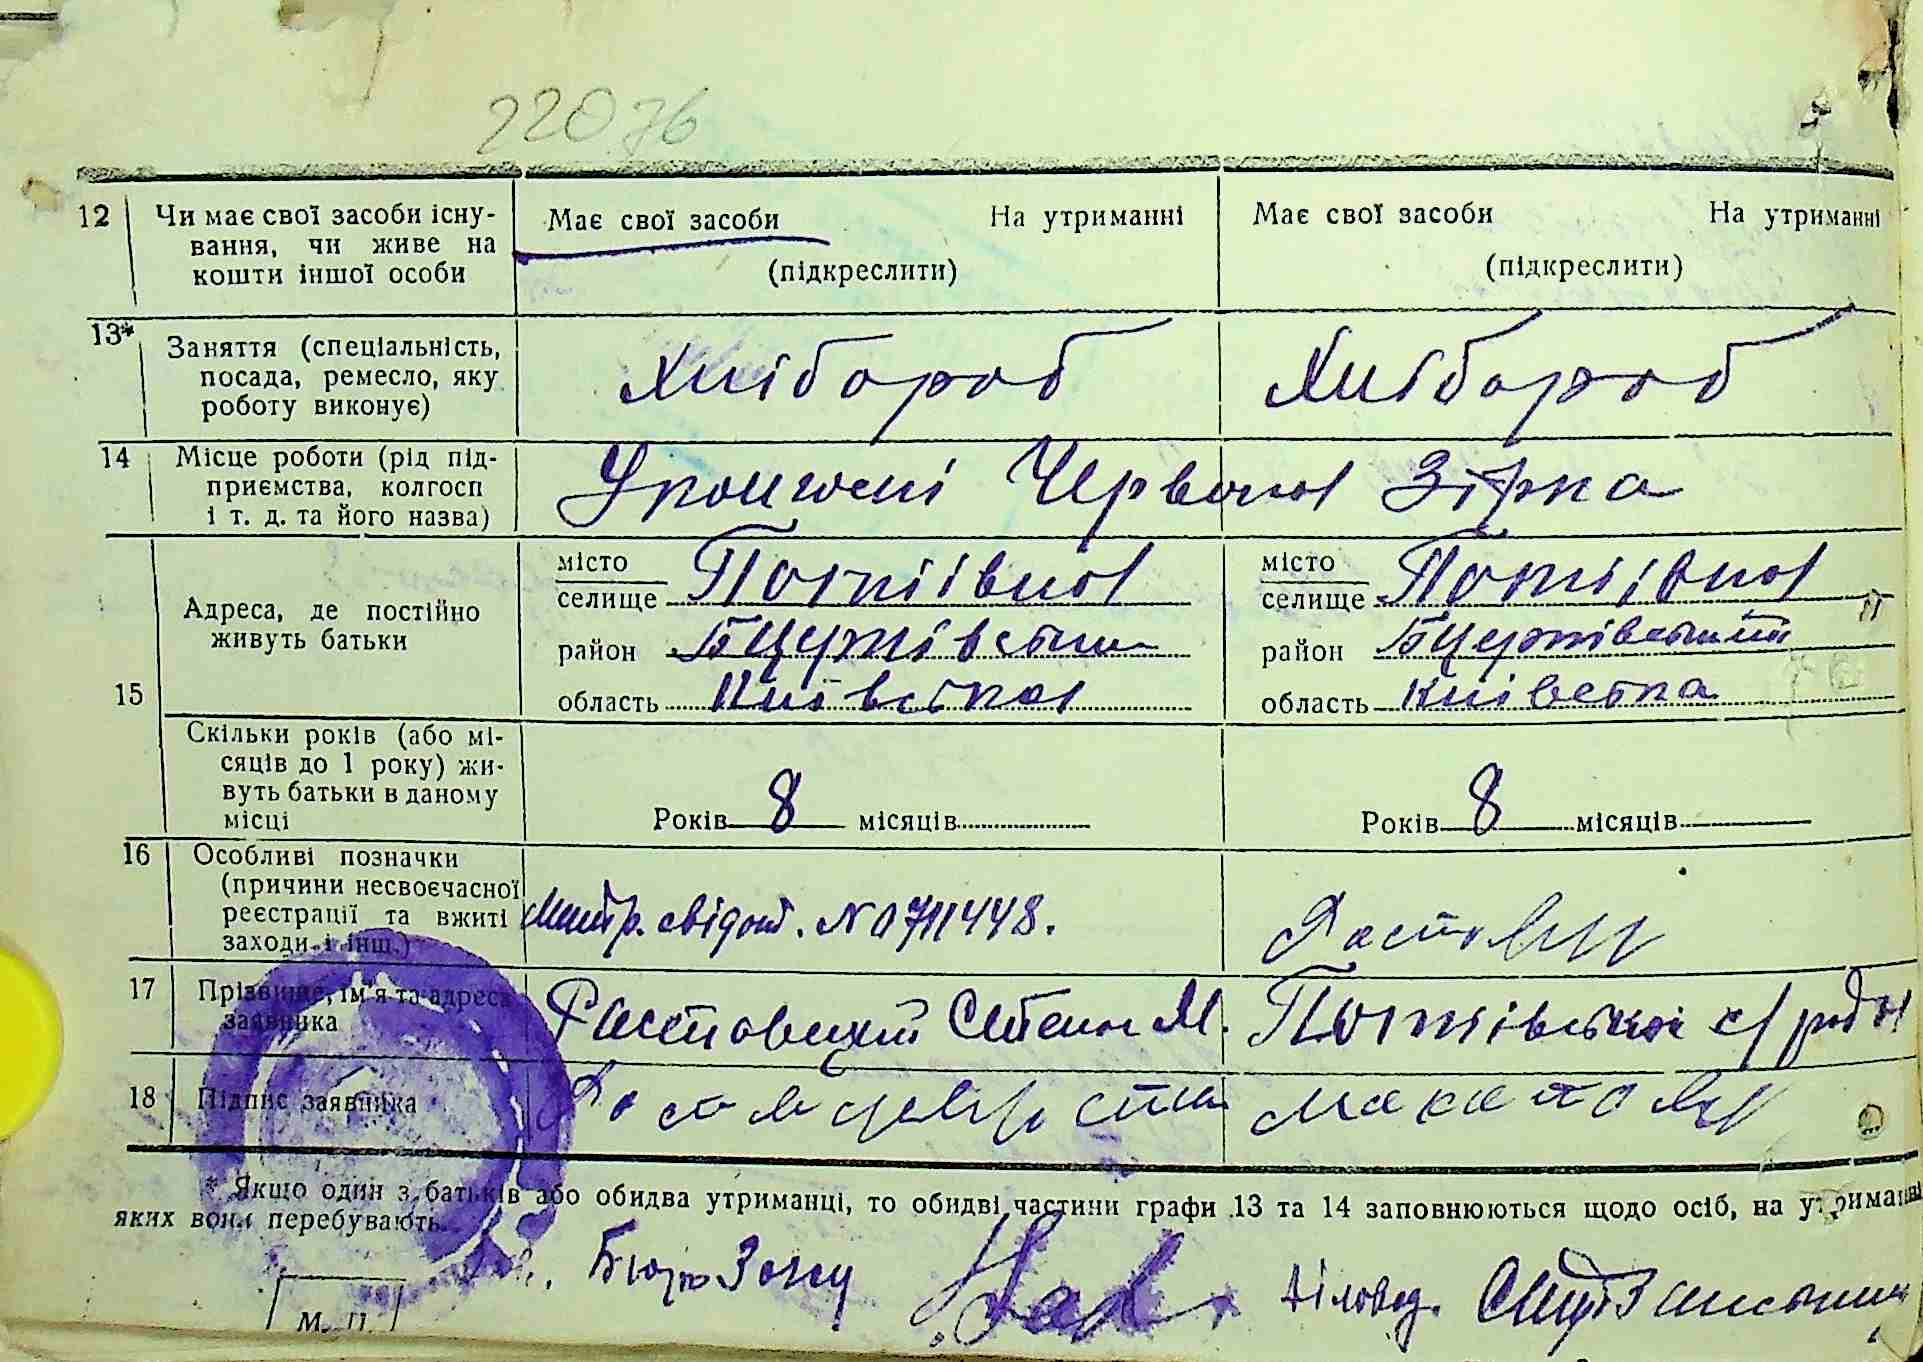 22076
12 Чи має свої засоби існу-
вання, чи живе на
кошти іншої особи
Має свої засоби На утриманні
(підкреслити)
Має свої засоби На утриманні
(підкреслити)
13* Заняття (спеціальність,
посада, ремесло, яку
роботу виконує)
Хлібороб
Хлібороб
14 Місце роботи (рід під-
приємства, колгосп
і т. д. та його назва)
Червона Зірка
15 Адреса, де постійно
живуть батьки
місто
селище Потіівка
район Бцерківськи
область Київська
місто
селище Потіівка
район Бцерківський
область Київська
Скільки років (або мі-
сяців до 1 року) жи-
вуть батьки в даному
місці
Років 8 місяців
Років 8 місяців
16 Особливі позначки
(причини несвоєчасної
реєстрації та вжиті
заходи і інш.)
Митр. свідоц. N 0711448.
17 Прізвище, ім'я та адреса
заявника
Растовецкий Степан М. Потіївської с/рада
18 Підпис заявника
* Якщо один з батьків або обидва утриманці, то обидві частини графи 13 та 14 заповнюються щодо осіб, на утриманні
яких вони перебувають.
Бюро Загсу
діловод.
М. П.